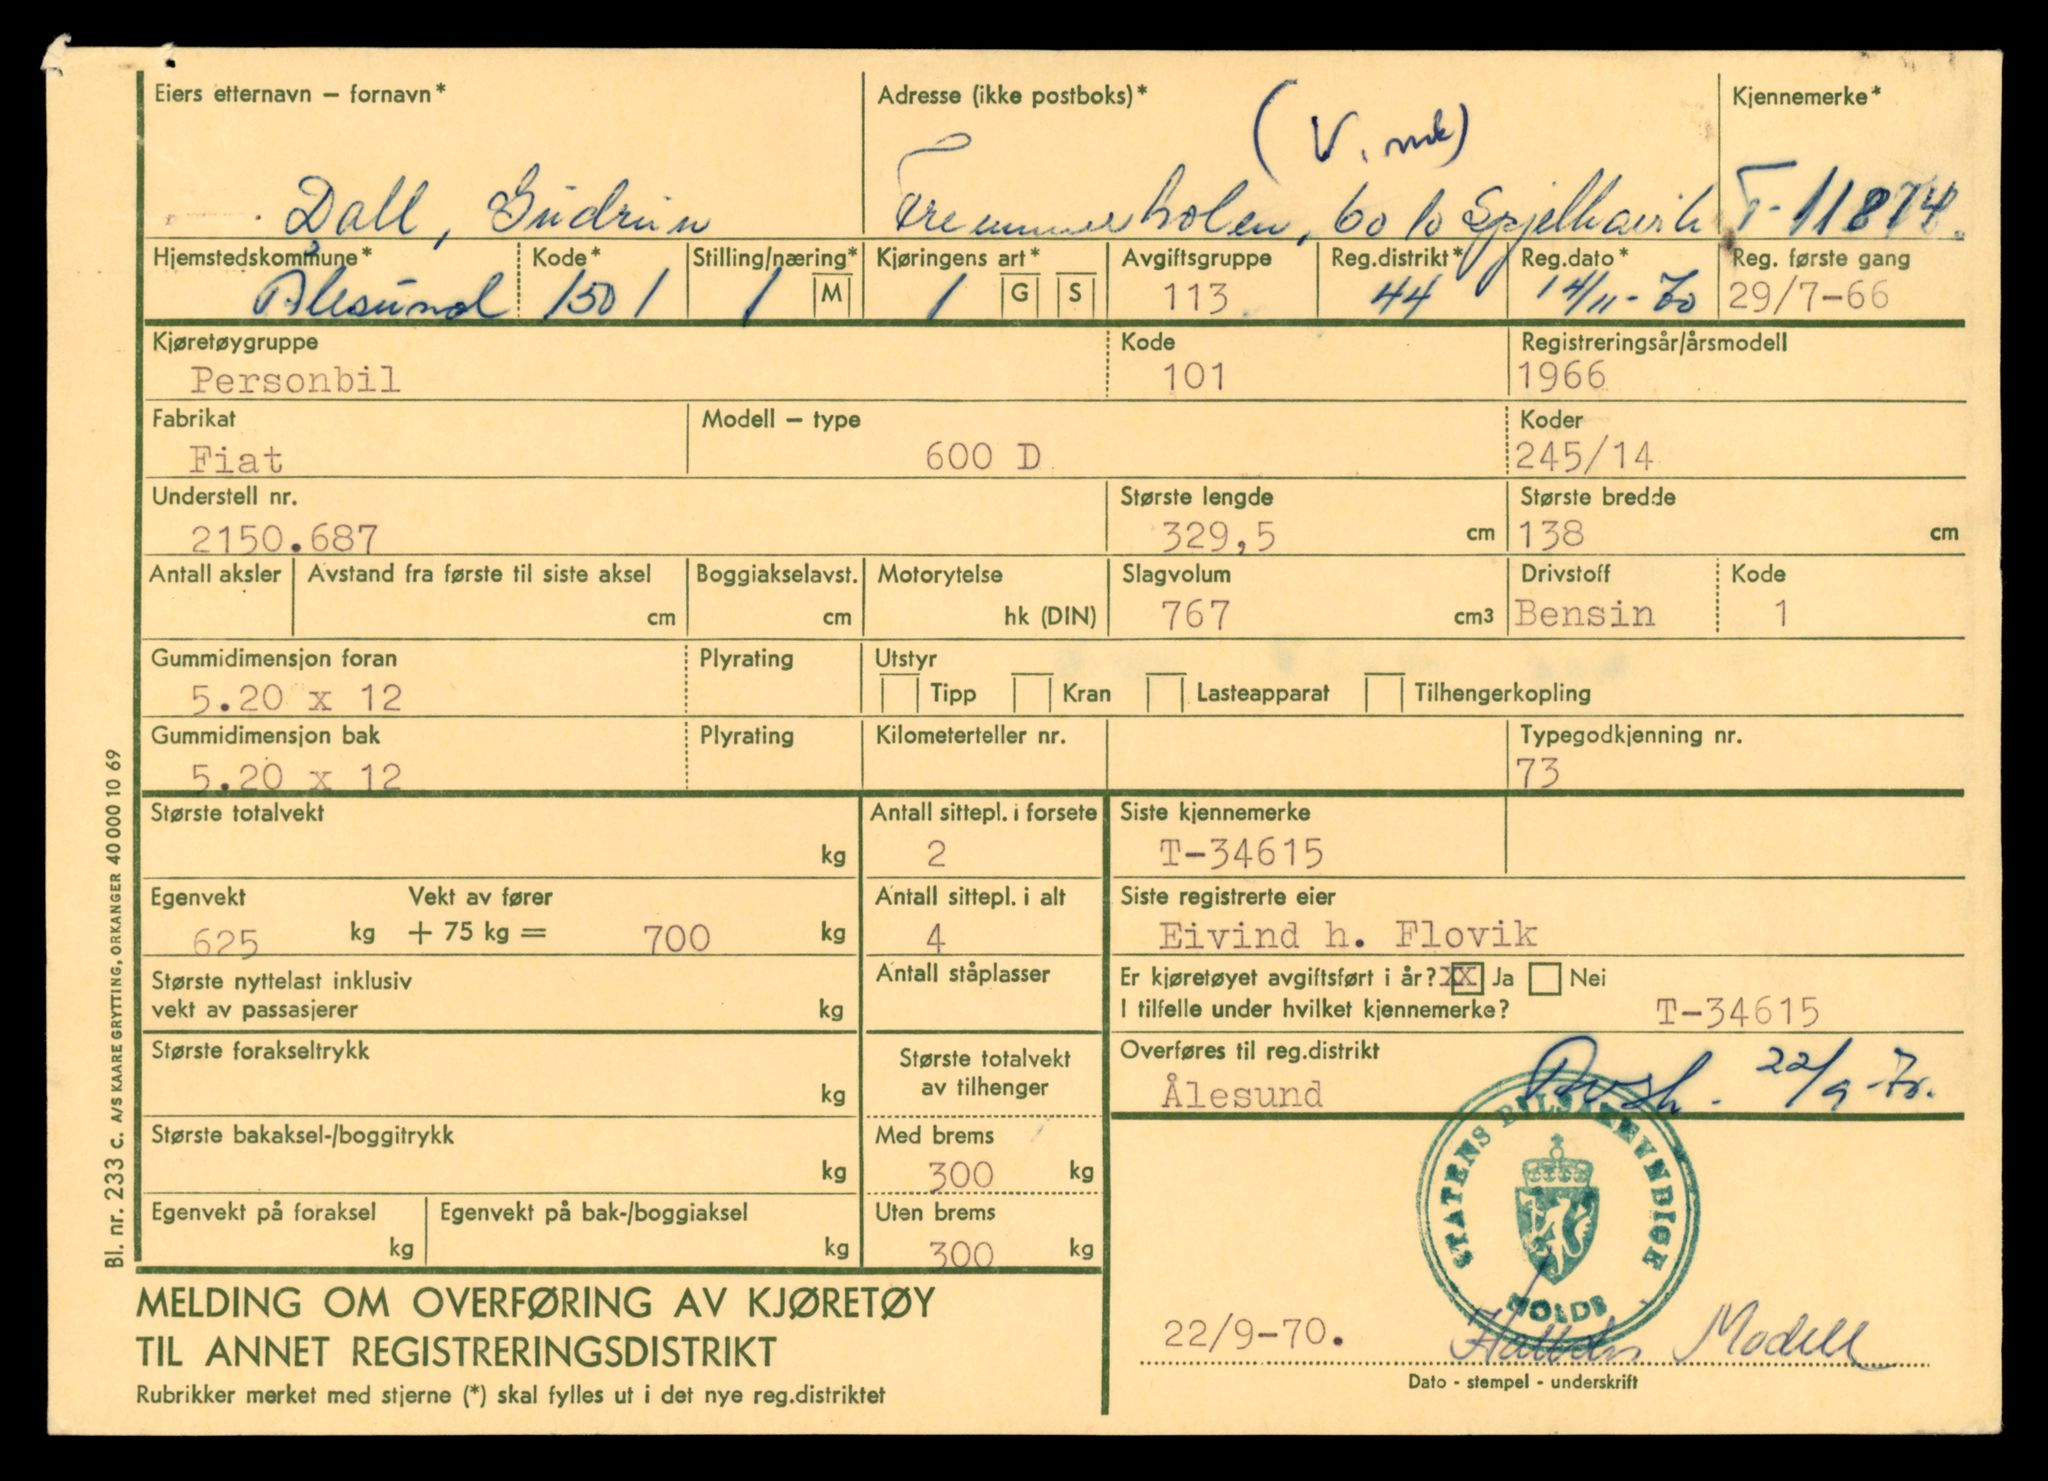 Eiers etternavn – fornavn*
Dall, Gudrun
Adresse (ikke postboks)*
(V. mk)
Fremmerholen, 6010 Spjelkavik
Kjennemerke*
T-11874.
Hjemstedskommune*
Ålesund
Kode*
1501
Stilling/næring*
1 M
Kjøringens art*
1 G S
Avgiftsgruppe
113
Reg.distrikt*
44
Reg.dato*
14/11-70
Reg. første gang
29/7-66
Kjøretøygruppe
Personbil
Kode
101
Registreringsår/årsmodell
1966
Fabrikat
Fiat
Modell – type
600 D
Koder
245/14
Understell nr.
2150.687
Største lengde
329,5 cm
Største bredde
138 cm
Antall aksler
Avstand fra første til siste aksel
cm
Boggiakselavst.
cm
Motorytelse
hk (DIN)
Slagvolum
767 cm3
Drivstoff
Bensin
Kode
1
Gummidimensjon foran
5.20 x 12
Plyrating
Utstyr
Tipp Kran Lasteapparat Tilhengerkopling
Gummidimensjon bak
5.20 x 12
Plyrating
Kilometerteller nr.
Typegodkjenning nr.
73
Største totalvekt
kg
Antall sittepl. i forsete
2
Siste kjennemerke
T-34615
Egenvekt
625 kg
Vekt av fører
+ 75 kg = 700 kg
Antall sittepl. i alt
4
Siste registrerte eier
Eivind h. Flovik
Største nyttelast inklusiv
vekt av passasjerer kg
Antall ståplasser
Er kjøretøyet avgiftsført i år? XX Ja Nei
I tilfelle under hvilket kjennemerke? T-34615
Største forakseltrykk
kg
Største totalvekt
av tilhenger
Overføres til reg.distrikt
Ålesund
22/9-70.
Største bakaksel-/boggitrykk
kg
Med brems
300 kg
Egenvekt på foraksel
kg
Egenvekt på bak-/boggiaksel
kg
Uten brems
300 kg
STATENS BILSAKKYNDIGE
MOLDE
22/9-70.
Modell
Dato - stempel - underskrift
MELDING OM OVERFØRING AV KJØRETØY
TIL ANNET REGISTRERINGSDISTRIKT
Rubrikker merket med stjerne (*) skal fylles ut i det nye reg.distriktet
Bl. nr. 233 C. A/S KAARE GRYTTING, ORKANGER 40 000 10 69